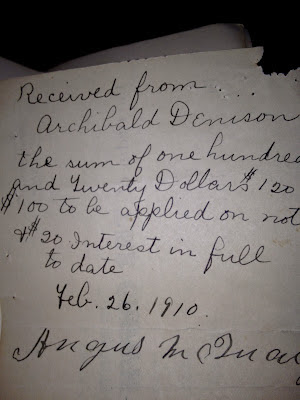 Received from . . .
Archibald Denison
the sum of one hundred
and Twenty Dollars $120
$100 to be applied on not
& $20 Interest in full
to date
Feb. 26. 1910.
Angus